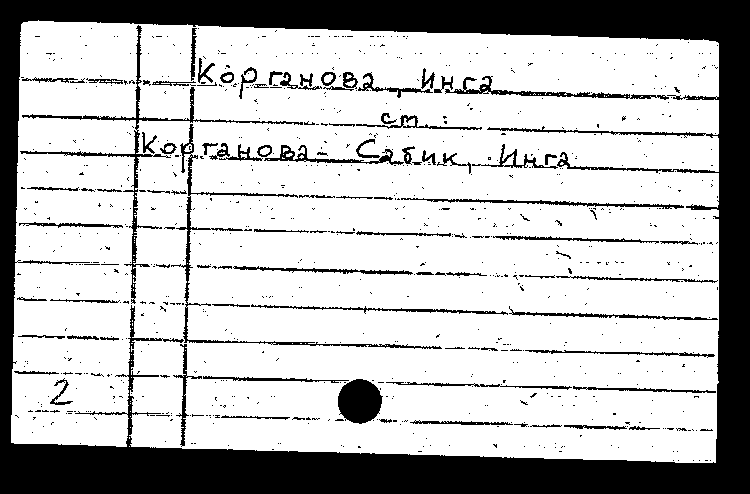 Корганова, Инга
ст:
Корганова- Сабик, Инга
2